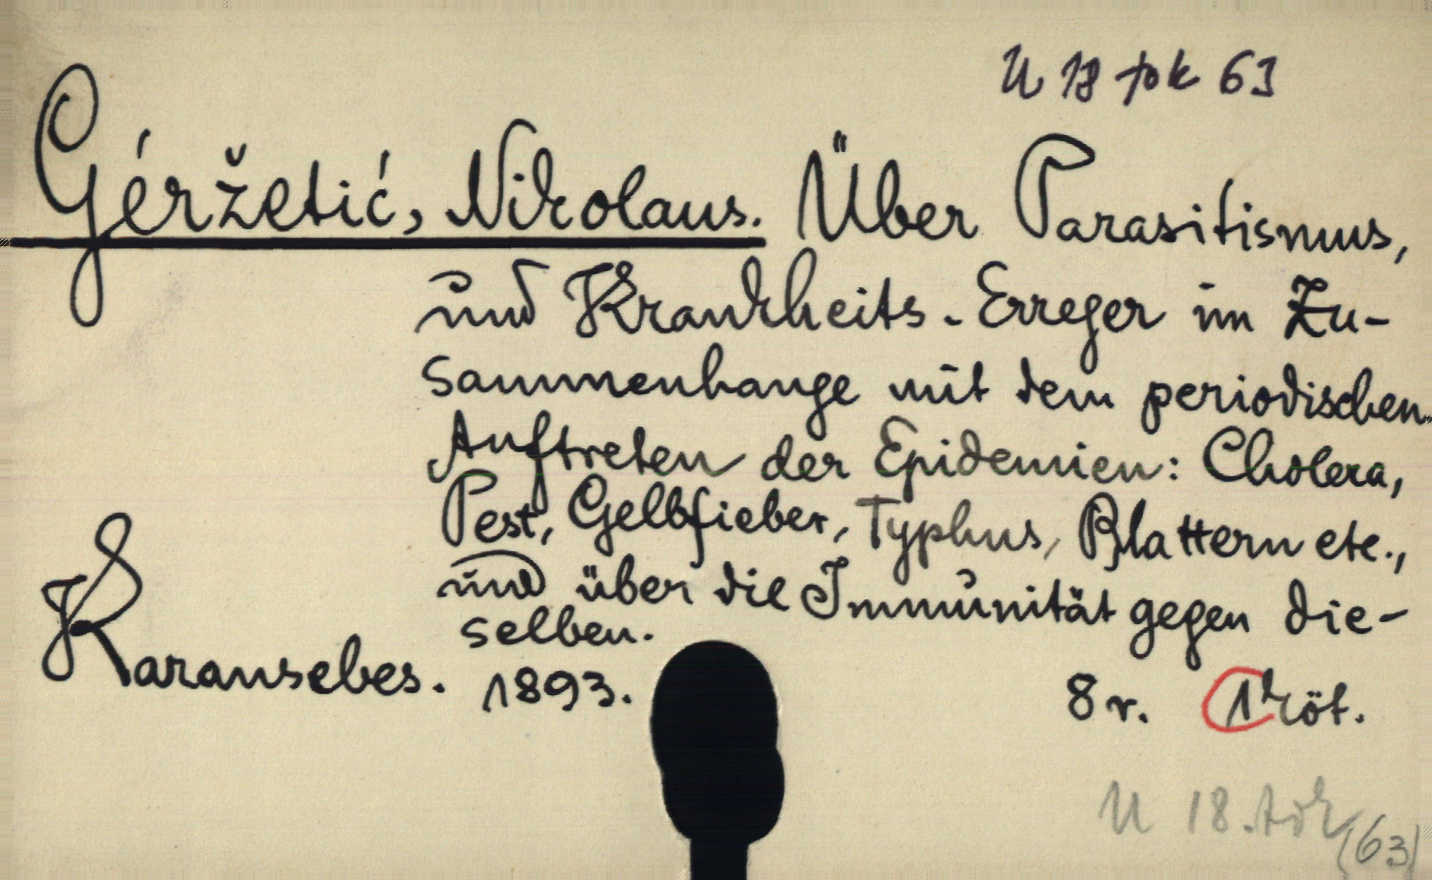 U 18 tok 63
Géržetić, Nikolaus. Über Parasitismus,
und Krankheits-Erreger im Zu-
sammenhange mit dem periodischen
Auftreten der Epidemien: Cholera,
Pest, Gelbfieber, Typhus, Blattern etc.,
und über die Immunität gegen die-
selben.
Karansebes. 1893. 8r. 1 köt.
U 18. tok
(63)